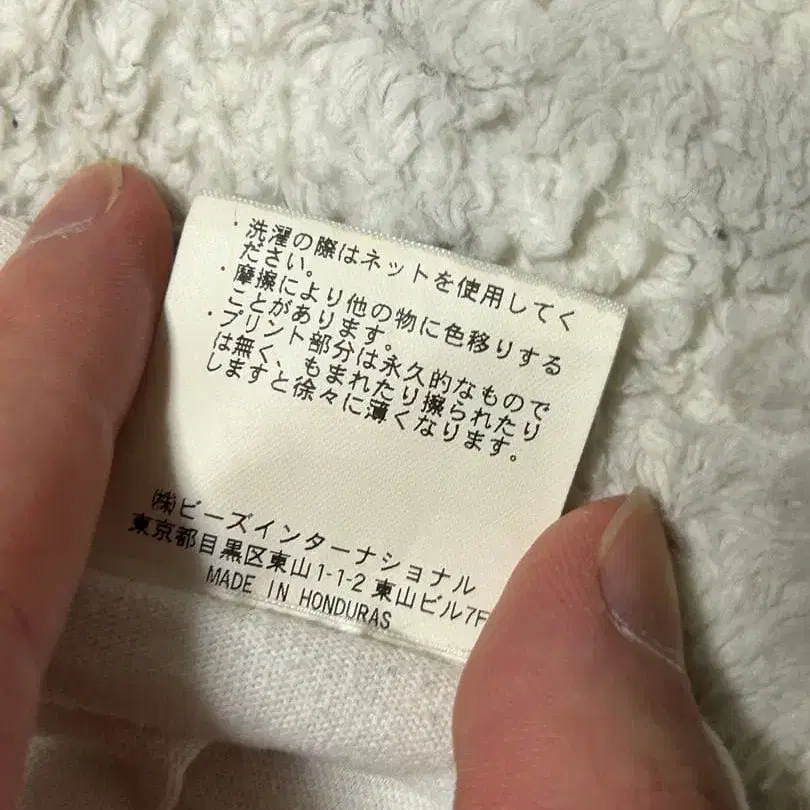 ・洗濯の際はネットを使用してく
ださい。
・摩擦により他の物に色移りする
ことがあります。
・プリント部分は永久的なもので
は無く、もまれたり擦られたり
しますと徐々に薄くなります。
㈱ビーズインターナショナル
東京都目黒区東山1-1-2 東山ビル7F
MADE IN HONDURAS